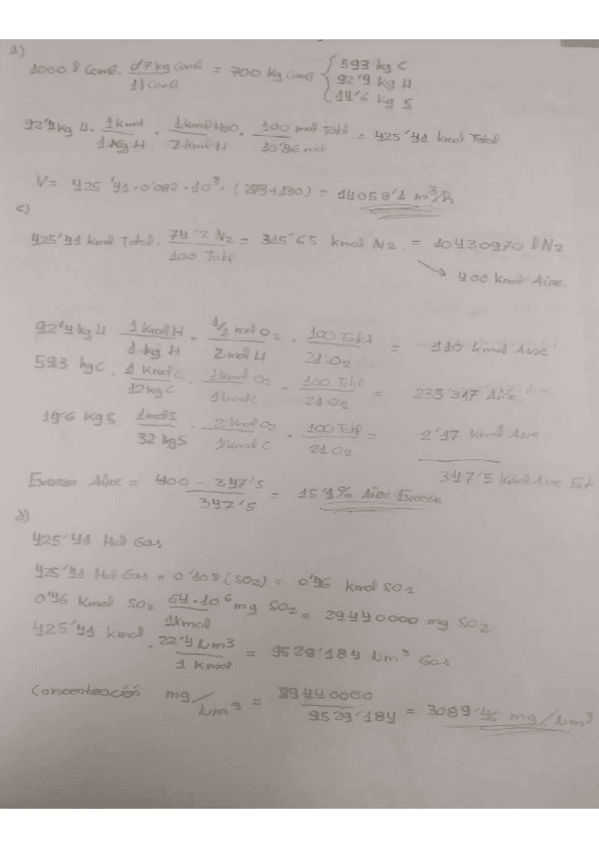 a)
1000 l Comb. d7 kg Comb / 1 l Comb = 700 kg Comb { 593 kg C
92'4 kg H
14'6 kg S
92'4 kg H · 1 kmol / 1 kg H · 1 kmol H2O / 2 kmol H · 100 mol Total / 10'86 mol = 425'41 kmol Total
V = 425'41 · 0'082 · 10³ · (273+130) = 14058'1 m³/h
c)
425'41 kmol Total · 74'2 N2 / 100 Total = 315'65 kmol N2 = 10430970 l N2
→ 400 kmol Aire
92'4 kg H 1 kmol H / 1 kg H · 1/2 mol O2 / 2 mol H · 100 Total / 21 O2 = 110 kmol Aire
593 kg C · 1 kmol C / 12 kg C · 1 kmol O2 / 1 kmol C · 100 Total / 21 O2 = 235'317 Aire
14'6 kg S 1 mol S / 32 kg S · 2 kmol O2 / 1 kmol C · 100 Total / 21 O2 = 2'17 kmol Aire
347'5 kmol Aire Est
Exceso Aire = 400 - 347'5 / 347'5 = 15'1% Aire Exceso
d)
425'41 Mol Gas
425'41 Mol Gas · 0'108 (SO2) = 0'46 kmol SO2
0'46 kmol SO2 64·10⁶ mg SO2 / 1 kmol = 29440000 mg SO2
425'41 kmol · 22'4 Nm³ / 1 kmol = 9529'184 Nm³ Gas
Concentración mg/Nm³ = 29440000 / 9529'184 = 3089'46 mg/Nm³